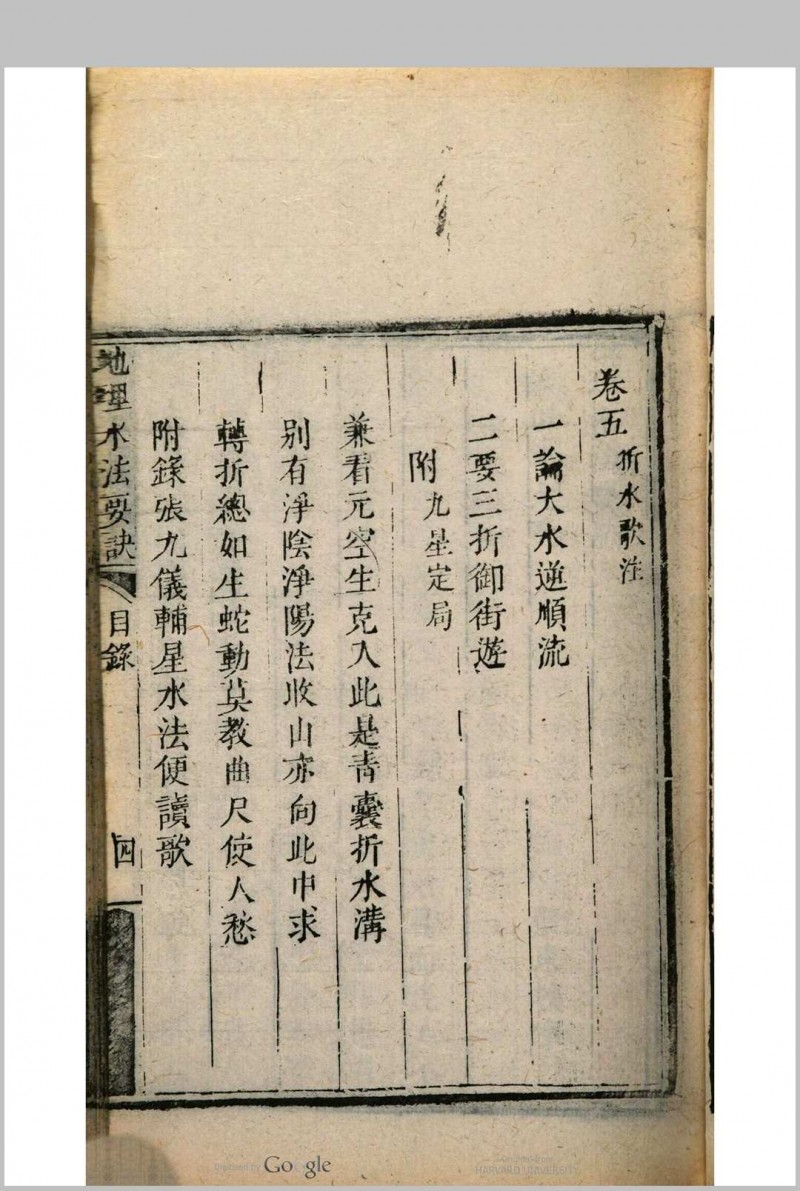 卷五 折水歌注
一論大水逆順流
二要三折御街遊
附九星定局
兼看元空生克入此是青囊折水溝
別有淨陰淨陽法收山亦向此中求
轉折總如生蛇動莫教曲尺使人愁
附錄張九儀輔星水法便讀歌
地理水法要訣 目錄 四
Digitized by Google
Original from
HARVARD UNIVERSITY